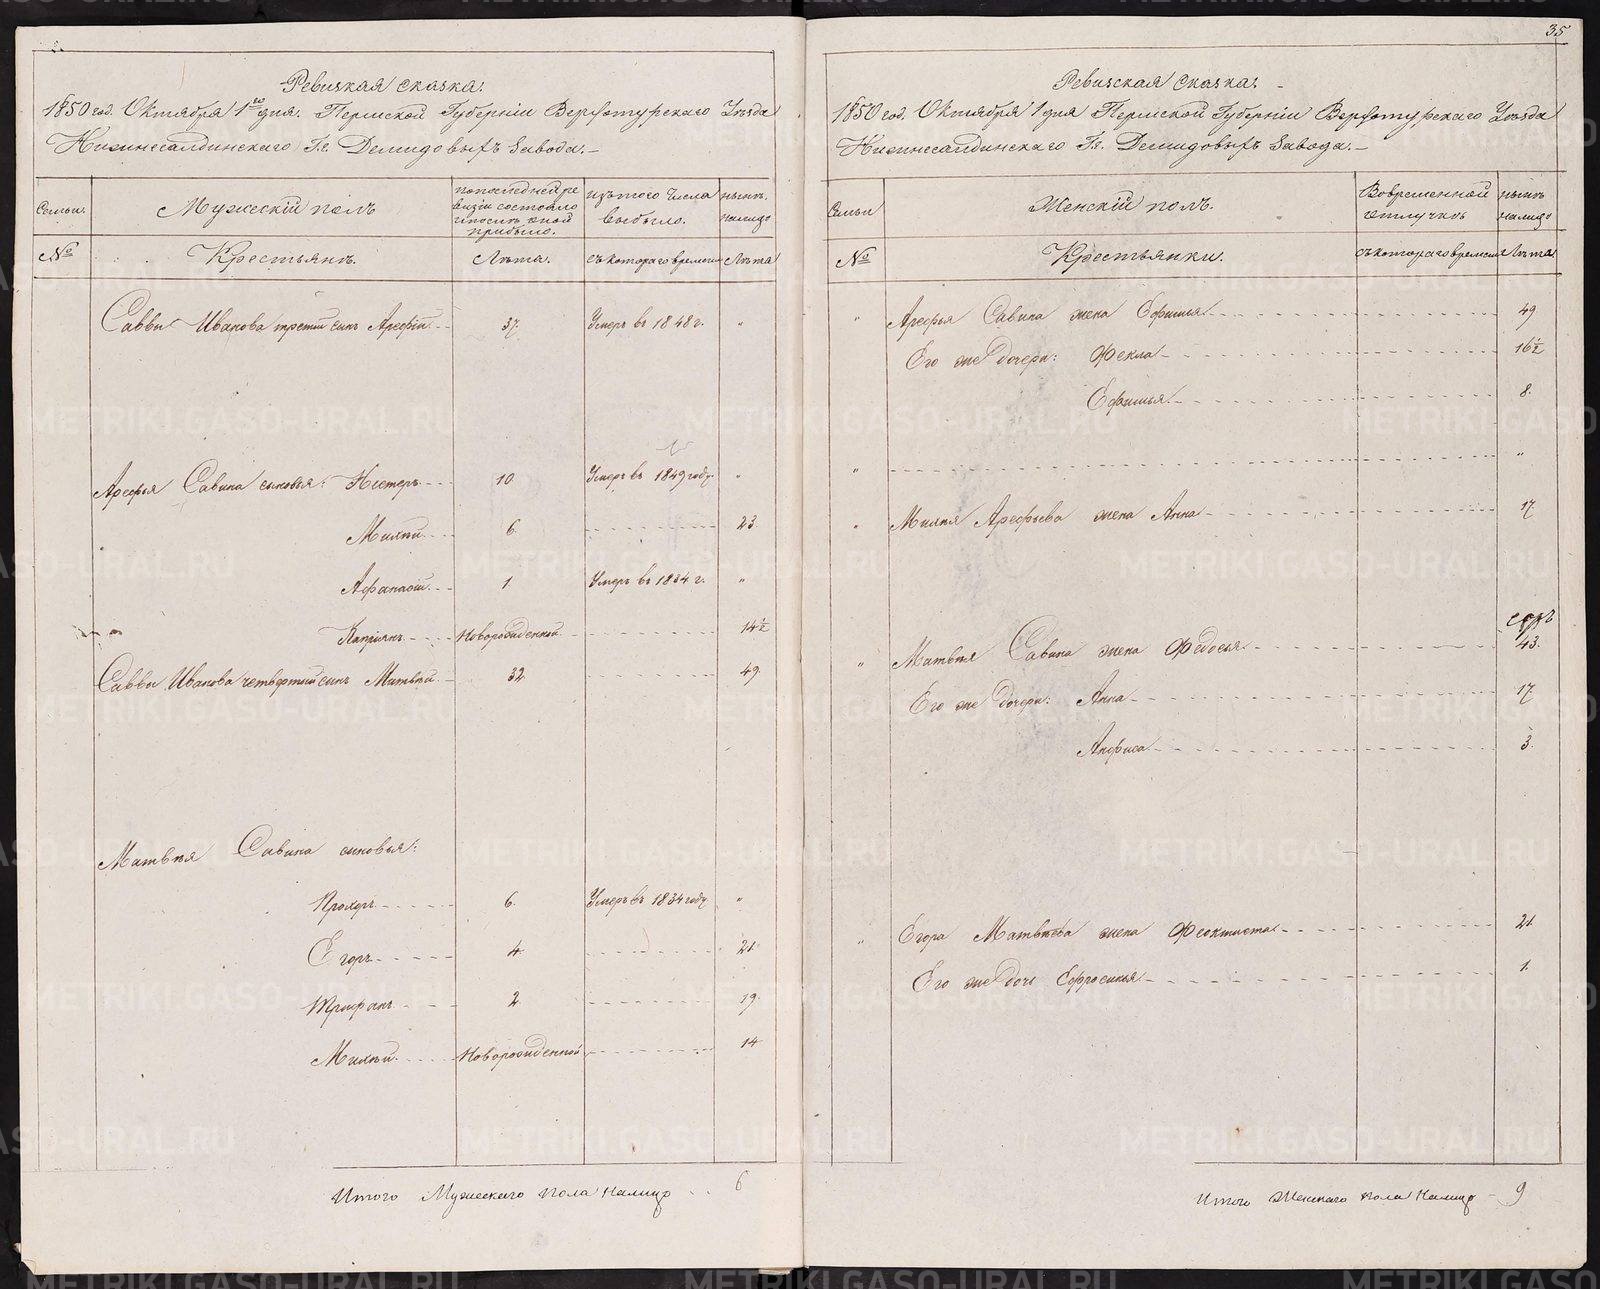 Ревизкая сказка.
1850 год. Октября 1го дня. Пермской Губернiи Верхотурскаго Уѣзда
Нижнесалдинскаго Г.г. Демидовыхъ завода.
Семьи.
Мужескiй полъ
по последней ре
визiи состояло
и после оной
прибыло.
изъ того числа
выбыло.
нынѣ
налицо
№
Крестьянъ.
Лѣта.
съ котораго времени
Лѣта
Саввы Иванова третiй сынъ Арефiй 37. Умеръ въ 1848 г. "
Арефья Савина сыновья: Нестеръ 10 Умеръ въ 1849 году. "
Милѣй 6. 23.
Афанасiй 1 Умеръ въ 1834 г. "
Капрiянъ Новорожденной 14½
Саввы Иванова четвертый сынъ Матвѣй 32 49.
Матвѣя Савина сыновья:
Прохоръ 6. Умеръ въ 1834 году. "
Егоръ 4. 21
Трифанъ 2. 19.
Милѣй Новорожденной 14
Итого Мужескаго пола налицо 6
35
Ревизская сказка.
1850 год. Октября 1 дня Пермской Губернiи Верхотурскаго Уѣзда
Нижнесалдинскаго Г.г. Демидовыхъ завода.
Семьи
Женскiй полъ.
Во временной
отлучкѣ
нынѣ
налицо
№
Крестьянки.
съ котораго времени
Лѣта
" Арефья Савина жена Ефимья 49
Его же дочери: Фекла 16½
Ефимья 8.
" "
" Милѣя Арефьева жена Анна 17.
" Матвѣя Савина жена Федосья 43.
Его же дочери: Анна 17.
Анфиса 3.
" Егора Матвѣева жена Феоктиста 21
Его же дочь Ефросинья 1.
Итого Женскаго пола налицо 9